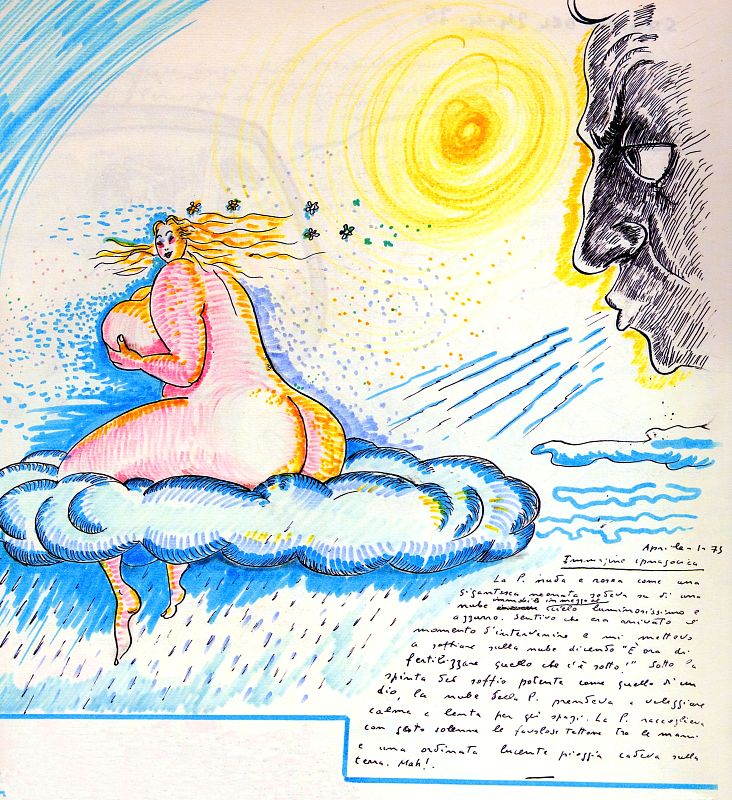 Aprile-1-75
Immagine ipnagogica
La P. nuda e rosea come una
gigantesca neonata sedeva su di una
nube immobile in mezzo al cielo luminosissimo e
azzurro. Sentivo che era arrivato il
momento d'intervenire e mi mettevo
a soffiare sulla nube dicendo "È ora di
fertilizzare quello che c'è sotto!" Sotto la
spinta del soffio potente come quello di un
dio, la nube della P. prendeva a veleggiare
calma e lenta per gli spazi. La P. raccoglieva
con gesto solenne le favolose tettone tra le mani
e una ordinata lucente pioggia cadeva sulla
terra. Mah!